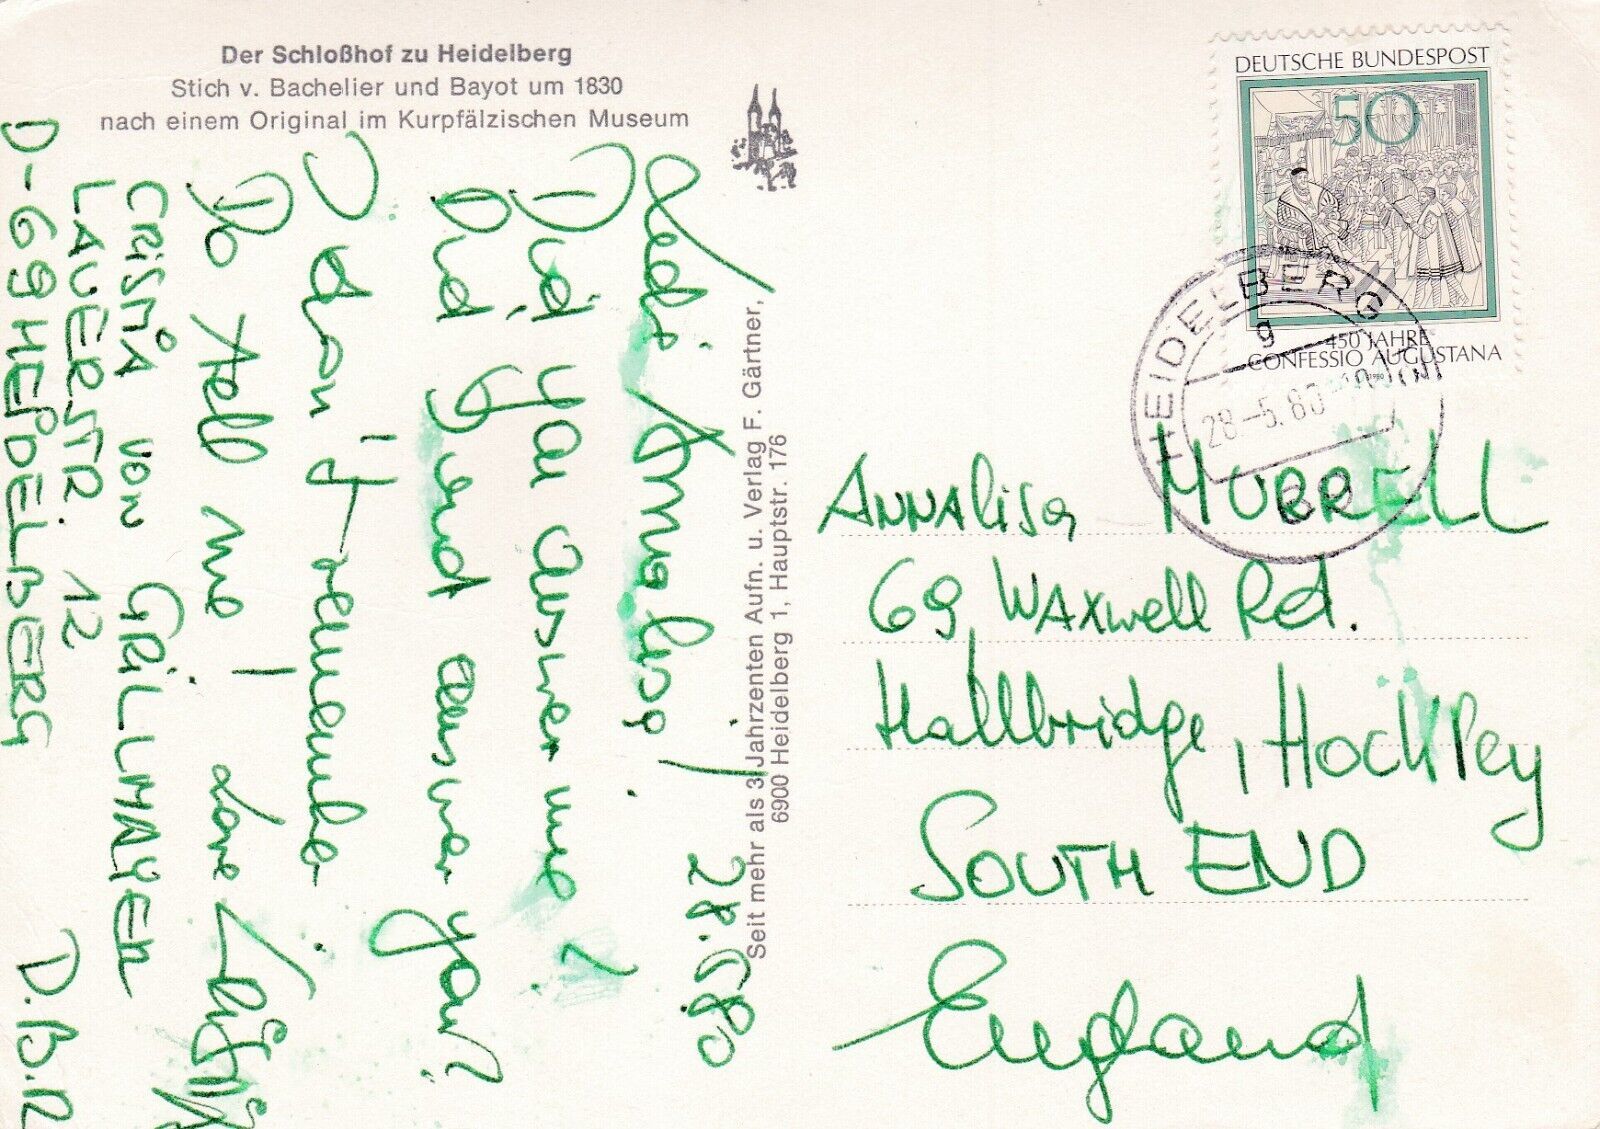 Der Schloßhof zu Heidelberg
Stich v. Bachelier und Bayot um 1830
nach einem Original im Kurpfälzischen Museum
Seit mehr als 3 Jahrzenten Aufn. u. Verlag F. Gärtner,
6900 Heidelberg 1, Hauptstr. 176
28.5.80
Did you answer me?
Did I and answer you?
I don't remember
Do tell me! Love
CRISTINA von GRILLMAYER
LAUERSTR. 12
D-69 HEIDELBERG
DEUTSCHE BUNDESPOST
50
450 JAHRE
CONFESSIO AUGUSTANA
1980
HEIDELBERG
g
28.-5.80
69
ANNALisa MURRELL
69, WAXwell Rd.
Hallbridge, HOCKley
SOUTH END
England